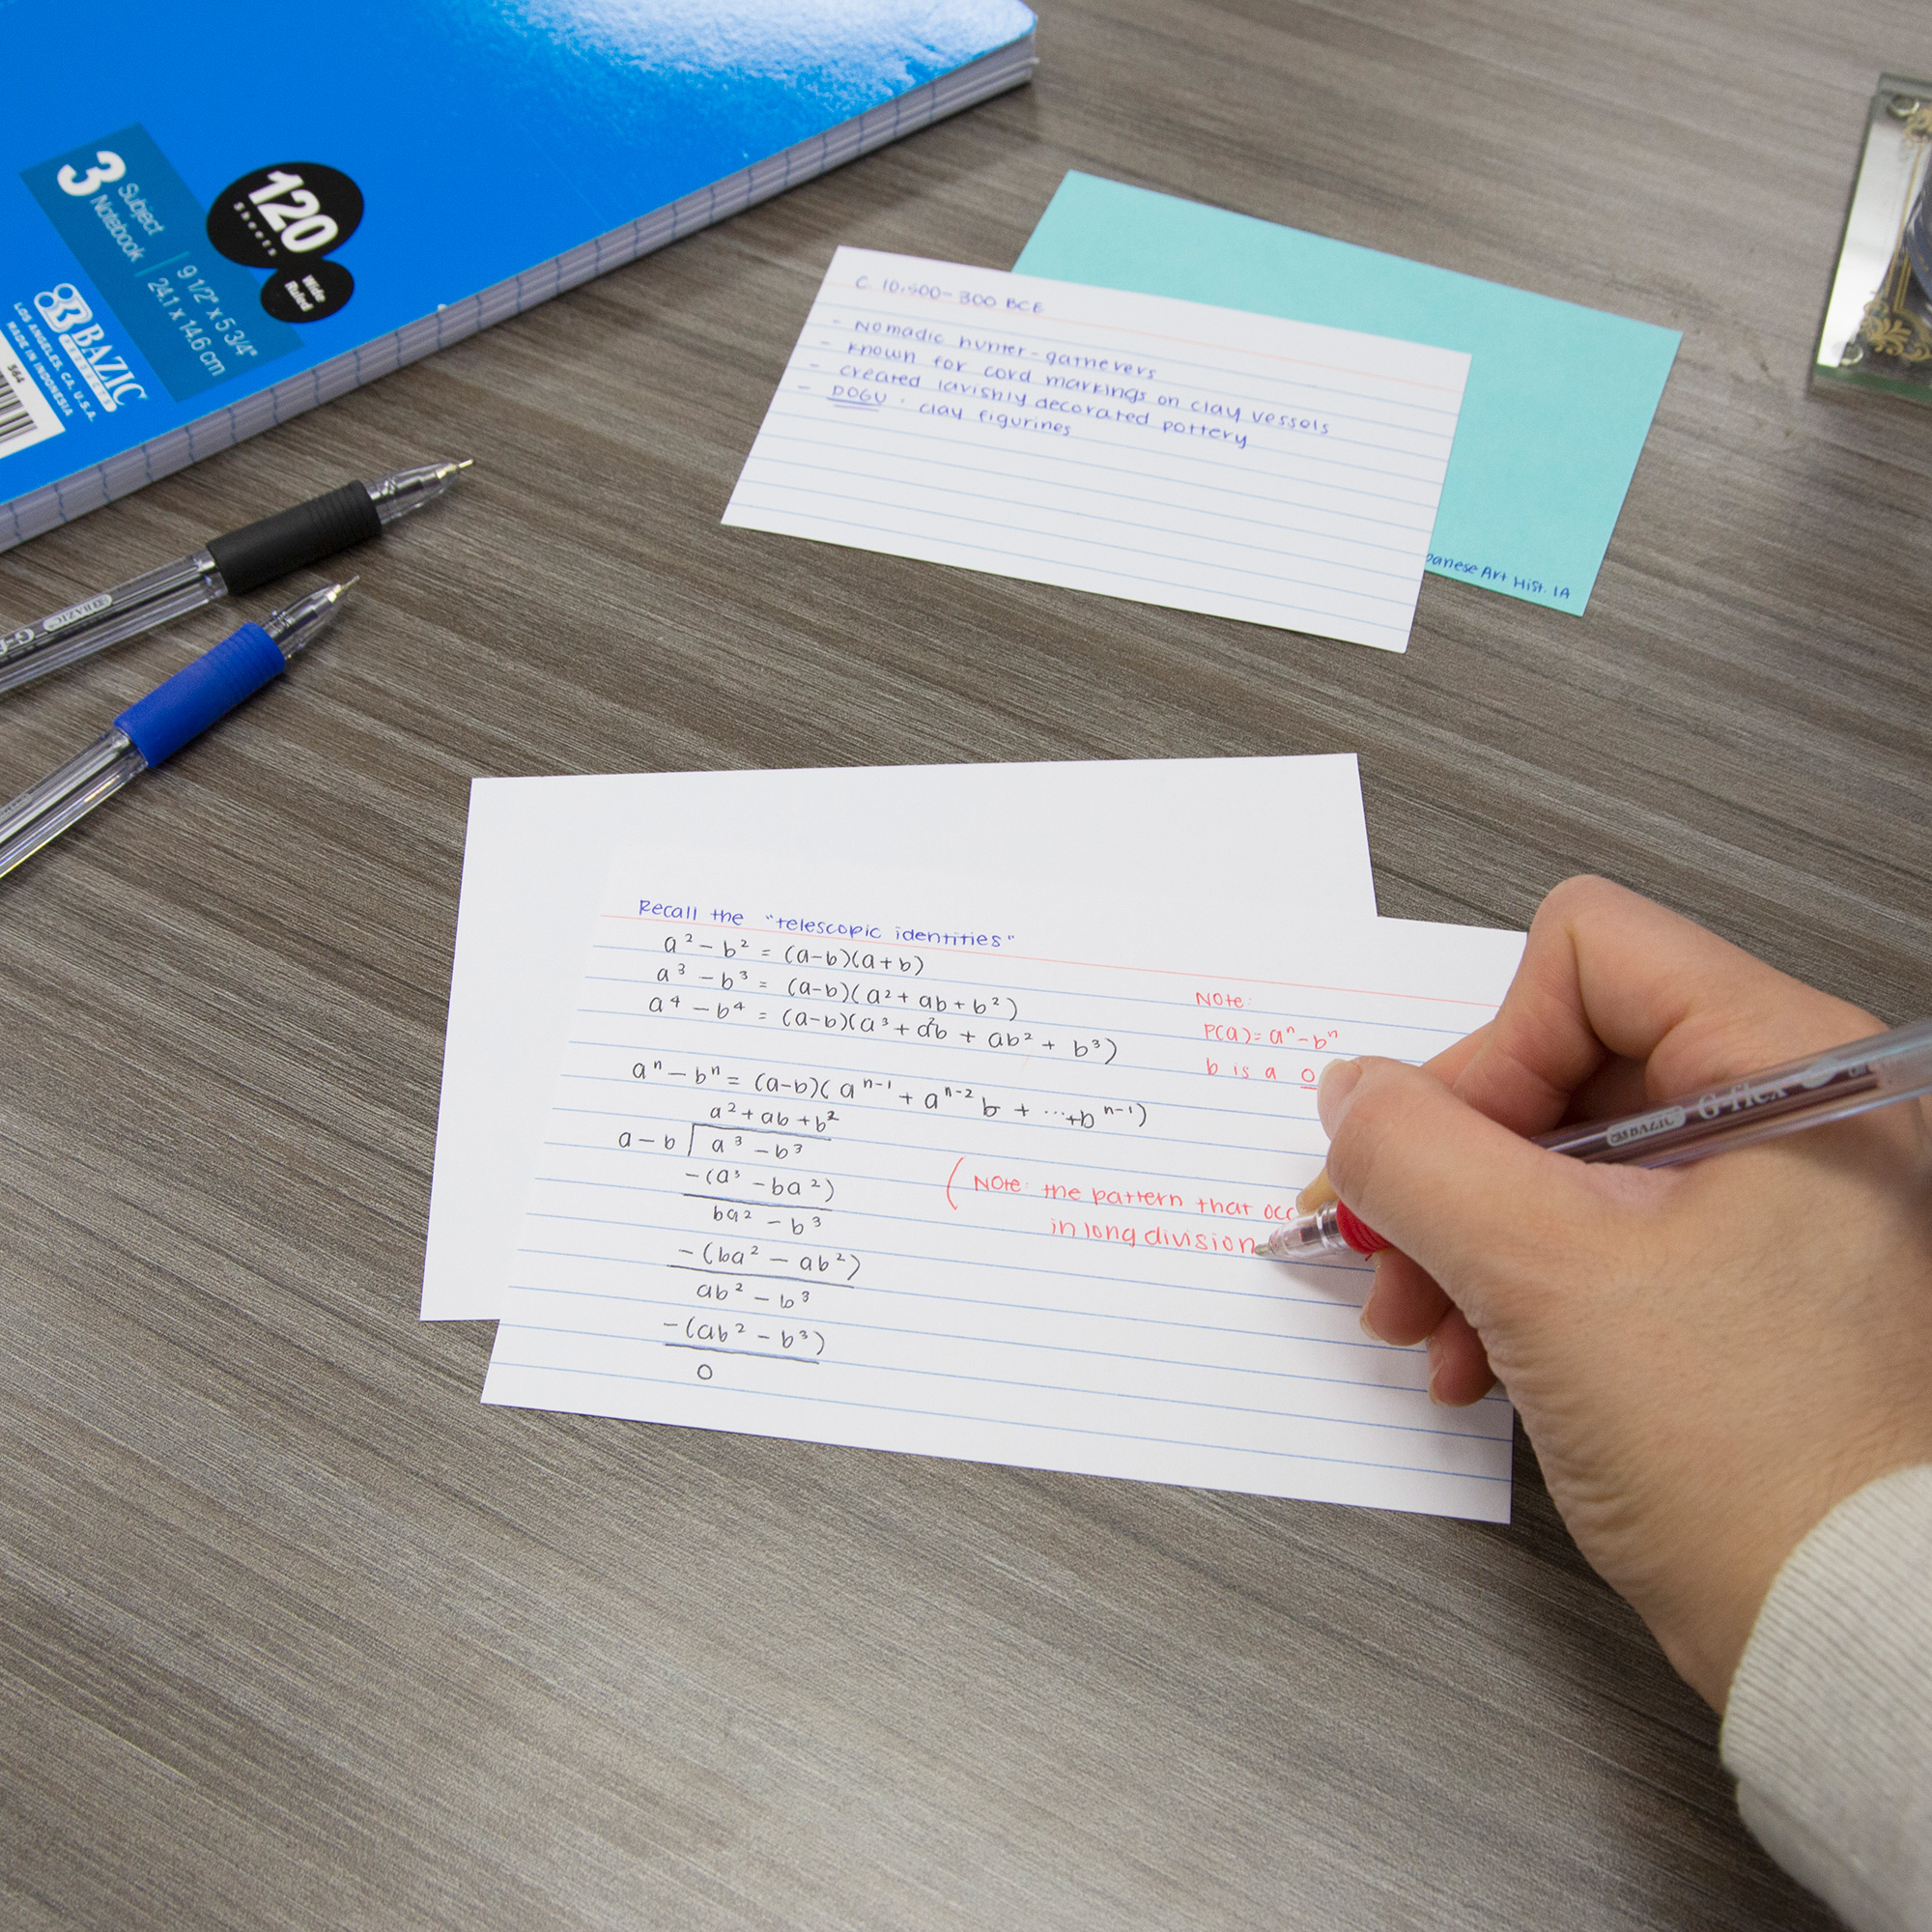 3 Subject
Notebook
9 1/2" x 5 3/4"
24.1 x 14.6 cm
120
Sheets
Wide
Ruled
BAZIC
PRODUCTS
LOS ANGELES, CA, U.S.A.
MADE IN INDONESIA
564
BAZIC
C 10,500-300 BCE
- Nomadic hunter-gatherers
- known for cord markings on clay vessels
- created lavishly decorated pottery
- DOGU : clay figurines
panese Art Hist. 1A
Recall the "telescopic identities"
a² - b² = (a-b)(a+b)
a³ - b³ = (a-b)(a² + ab + b²)
a⁴ - b⁴ = (a-b)(a³ + a²b + ab² + b³)
aⁿ - bⁿ = (a-b)(aⁿ⁻¹ + aⁿ⁻² b + ...+b ⁿ⁻¹)
Note:
P(a) = aⁿ - bⁿ
b is a 0
a² + ab + b²
a - b √ a³ - b³
-(a³ - ba²)
ba² - b³
-(ba² - ab²)
ab² - b³
-(ab² - b³)
0
(Note: the pattern that occ
in long division
BAZIC G-flex